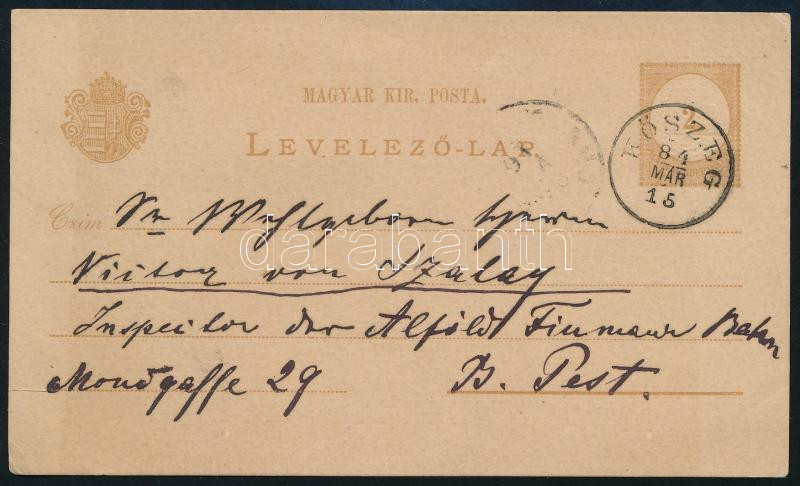 MAGYAR KIR. POSTA.
LEVELEZŐ-LAP.
2
KŐSZEG
84
MÁR
15
Czim Sr Wohlgeboren Herrn
Victor von Szalay
Inspector der Alföld Fiumaner Bahn
Mondgasse 29 B. Pest.
darabanth